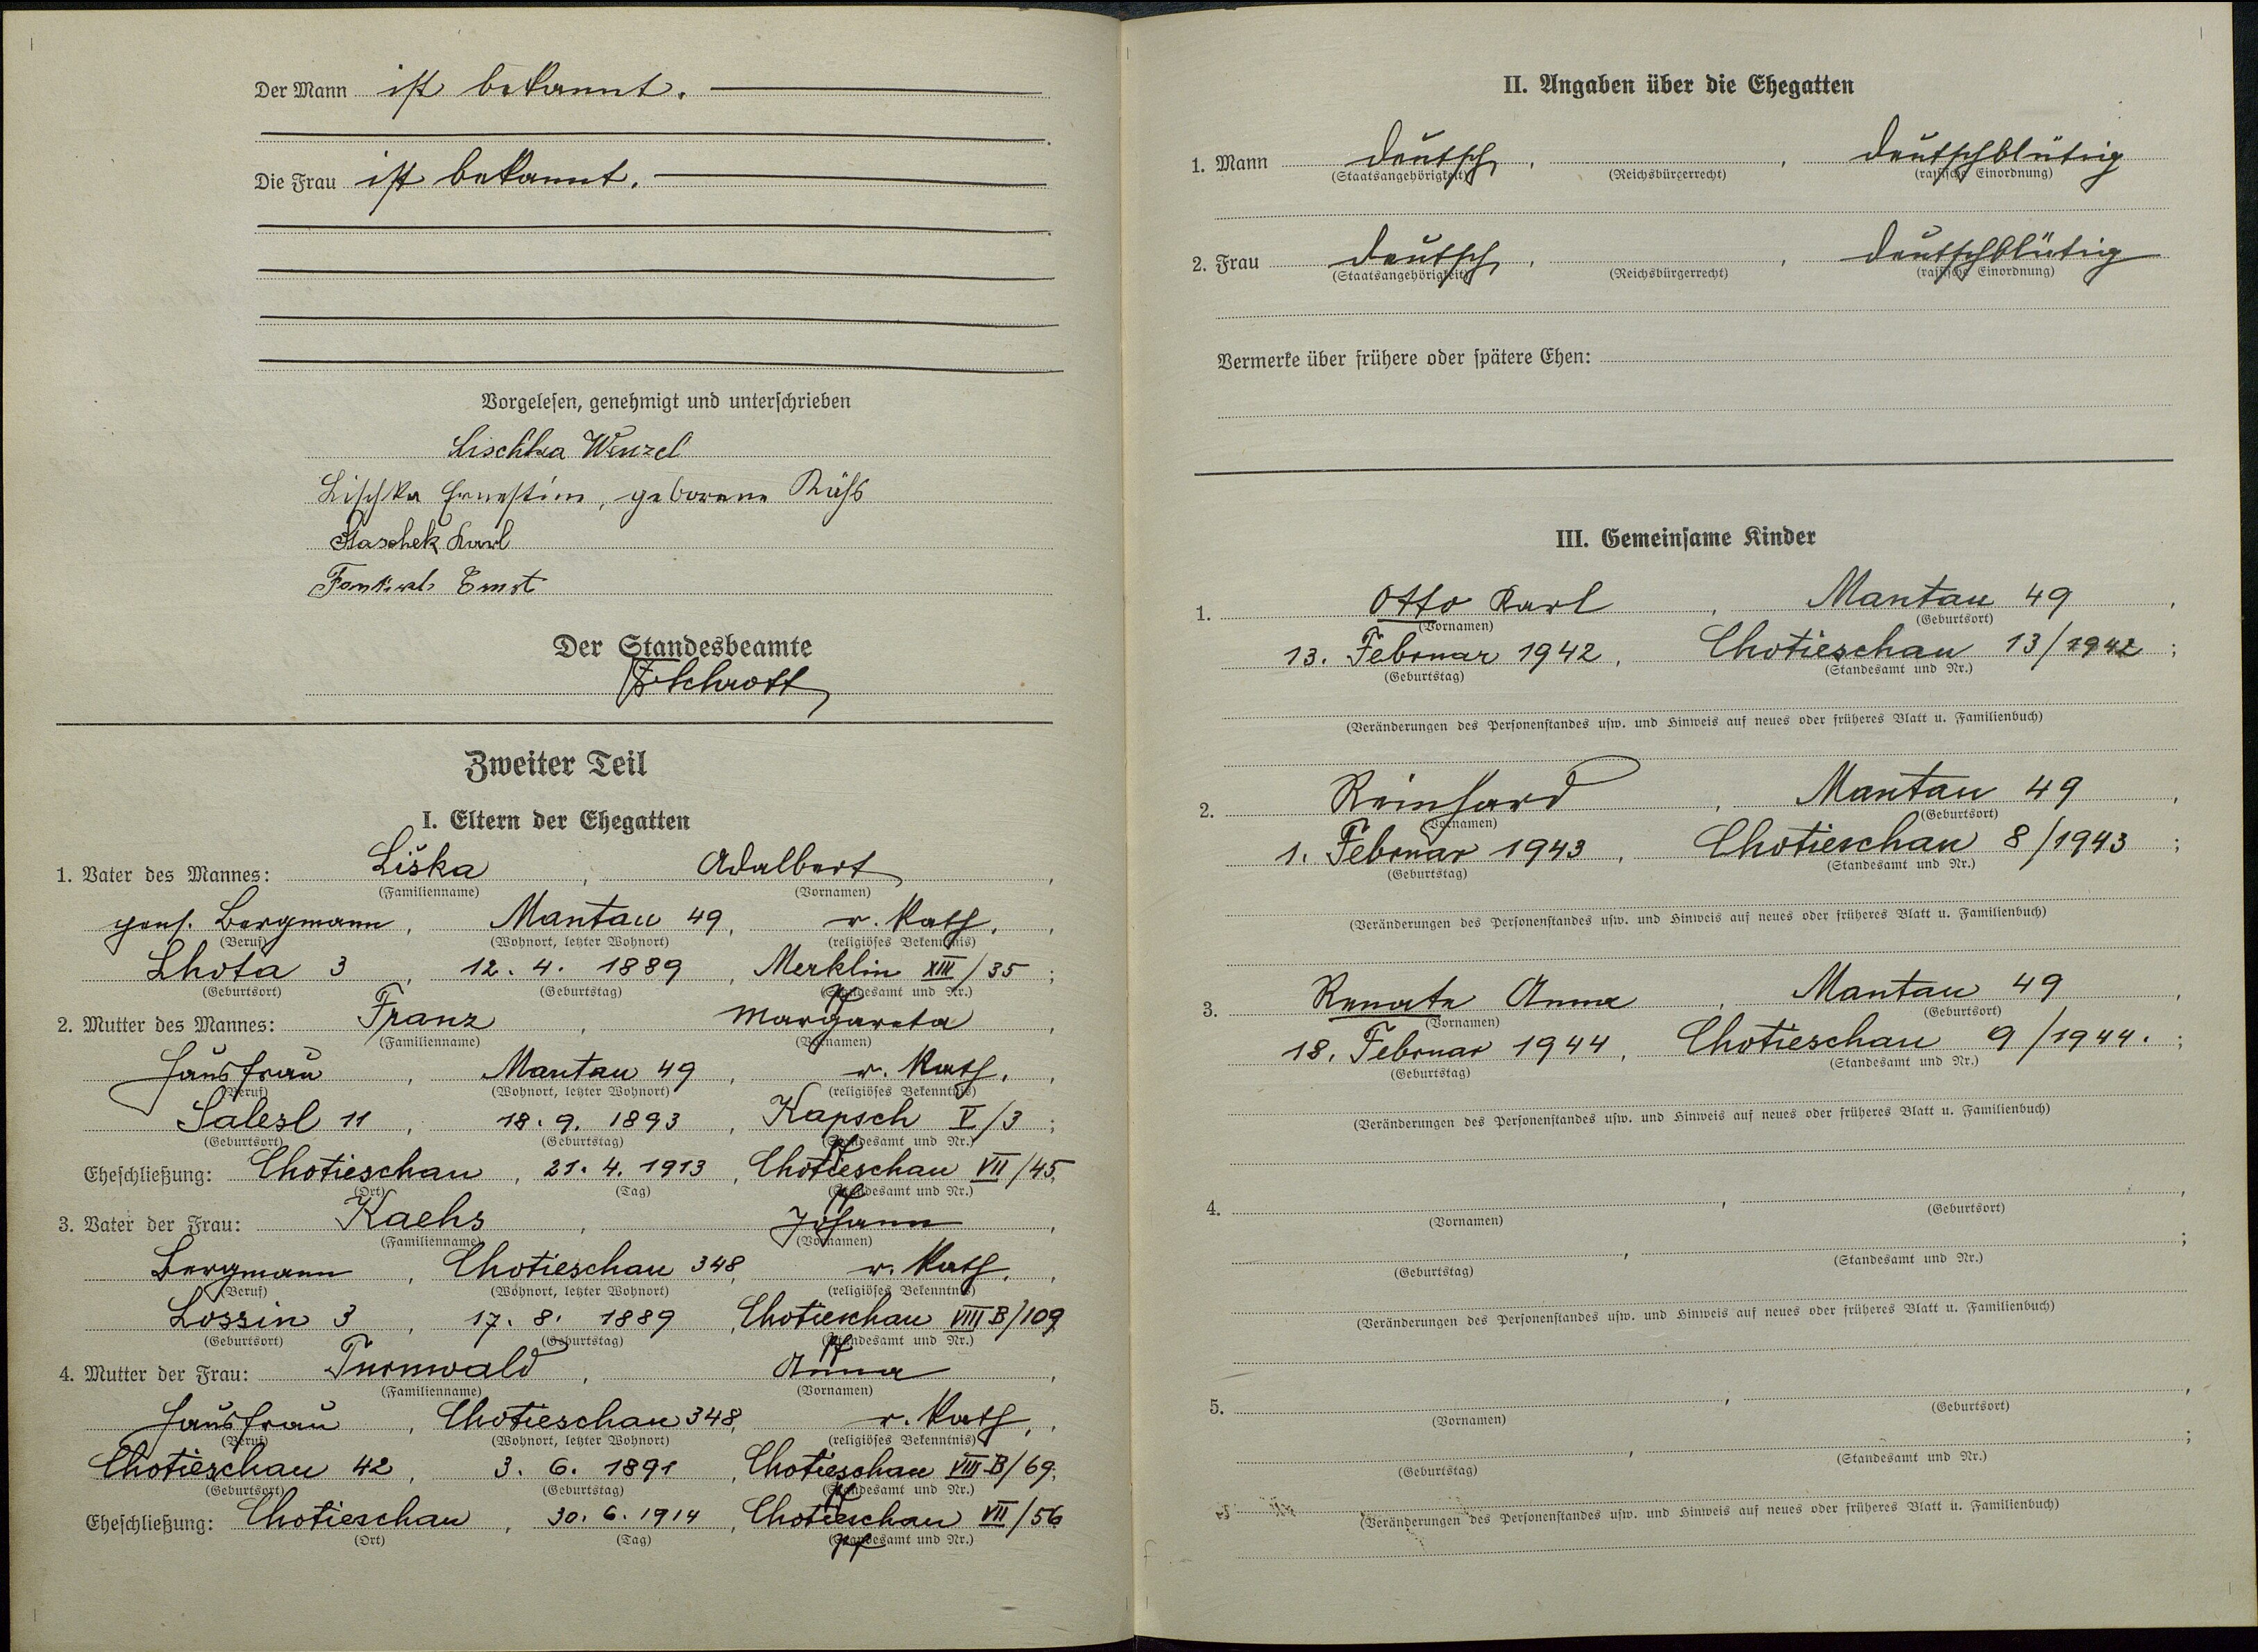 Der Mann ist bekannt.
Die Frau ist bekannt.
Vorgelesen, genehmigt und unterschrieben
Lischka Wenzel
Lischka Ernestine, geborene
Staschek Karl
Ernst
Der Standesbeamte
Schrott
Zweiter Teil
I. Eltern der Ehegatten
1. Vater des Mannes: Liška, Adalbert,
(Familienname) (Vornamen)
pens. Bergmann, Mantau 49, r. kath.,
(Beruf) (Wohnort, letzter Wohnort) (religiöses Bekenntnis)
Lhota 3, 12. 4. 1889, Merklin XIII/35;
(Geburtsort) (Geburtstag) (Standesamt und Nr.)
2. Mutter des Mannes: Franz, Margareta,
(Familienname) (Vornamen)
Hausfrau, Mantau 49, r. kath.,
(Beruf) (Wohnort, letzter Wohnort) (religiöses Bekenntnis)
Salesl 11, 18. 9. 1893, Kapsch V/3;
(Geburtsort) (Geburtstag) (Standesamt und Nr.)
Eheschließung: Chotieschau, 21. 4. 1913, Chotieschau VII/45.
(Ort) (Tag) (Standesamt und Nr.)
3. Vater der Frau: Kaehs, Johann,
(Familienname) (Vornamen)
Bergmann, Chotieschau 348, r. kath.,
(Beruf) (Wohnort, letzter Wohnort) (religiöses Bekenntnis)
Lossin 3, 17. 8. 1889, Chotieschau VIII B/109
(Geburtsort) (Geburtstag) (Standesamt und Nr.)
4. Mutter der Frau: Turnwald, Anna,
(Familienname) (Vornamen)
Hausfrau, Chotieschau 348, r. kath.,
(Beruf) (Wohnort, letzter Wohnort) (religiöses Bekenntnis)
Chotieschau 42, 3. 6. 1891, Chotieschau VIII B/69;
(Geburtsort) (Geburtstag) (Standesamt und Nr.)
Eheschließung: Chotieschau, 30. 6. 1914, Chotieschau VII/56
(Ort) (Tag) (Standesamt und Nr.)
II. Angaben über die Ehegatten
1. Mann deutsch, , deutschblütig
(Staatsangehörigkeit) (Reichsbürgerrecht) (rassische Einordnung)
2. Frau deutsch, , deutschblütig
(Staatsangehörigkeit) (Reichsbürgerrecht) (rassische Einordnung)
Vermerke über frühere oder spätere Ehen:
III. Gemeinsame Kinder
1. Otto Karl, Mantau 49,
(Vornamen) (Geburtsort)
13. Februar 1942, Chotieschau 13/1942;
(Geburtstag) (Standesamt und Nr.)
(Veränderungen des Personenstandes usw. und Hinweis auf neues oder früheres Blatt u. Familienbuch)
2. Reinhard, Mantau 49,
(Vornamen) (Geburtsort)
1. Februar 1943, Chotieschau 8/1943;
(Geburtstag) (Standesamt und Nr.)
(Veränderungen des Personenstandes usw. und Hinweis auf neues oder früheres Blatt u. Familienbuch)
3. Renate Anna, Mantau 49,
(Vornamen) (Geburtsort)
18. Februar 1944, Chotieschau 9/1944.;
(Geburtstag) (Standesamt und Nr.)
(Veränderungen des Personenstandes usw. und Hinweis auf neues oder früheres Blatt u. Familienbuch)
4. , ,
(Vornamen) (Geburtsort)
, ;
(Geburtstag) (Standesamt und Nr.)
(Veränderungen des Personenstandes usw. und Hinweis auf neues oder früheres Blatt u. Familienbuch)
5. , ,
(Vornamen) (Geburtsort)
, ;
(Geburtstag) (Standesamt und Nr.)
(Veränderungen des Personenstandes usw. und Hinweis auf neues oder früheres Blatt u. Familienbuch)